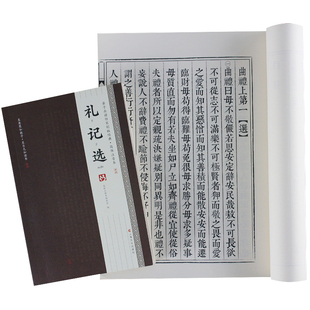 曲禮上第一【選】
曲禮曰毋不敬儼若思安定辭安民哉敖不可長欲
不可從志不可滿樂不可極賢者狎而敬之畏而愛
之愛而知其惡憎而知其善積而能散安安而能遷
臨財毋苟得臨難毋苟免很毋求勝分毋求多疑事
毋質直而勿有若夫坐如尸立如齊禮從宜使從俗
夫禮者所以定親疏決嫌疑別同異明是非也禮不
妄說人不辭費禮不踰節不侵侮不
謂之善行
人禮
礼记选